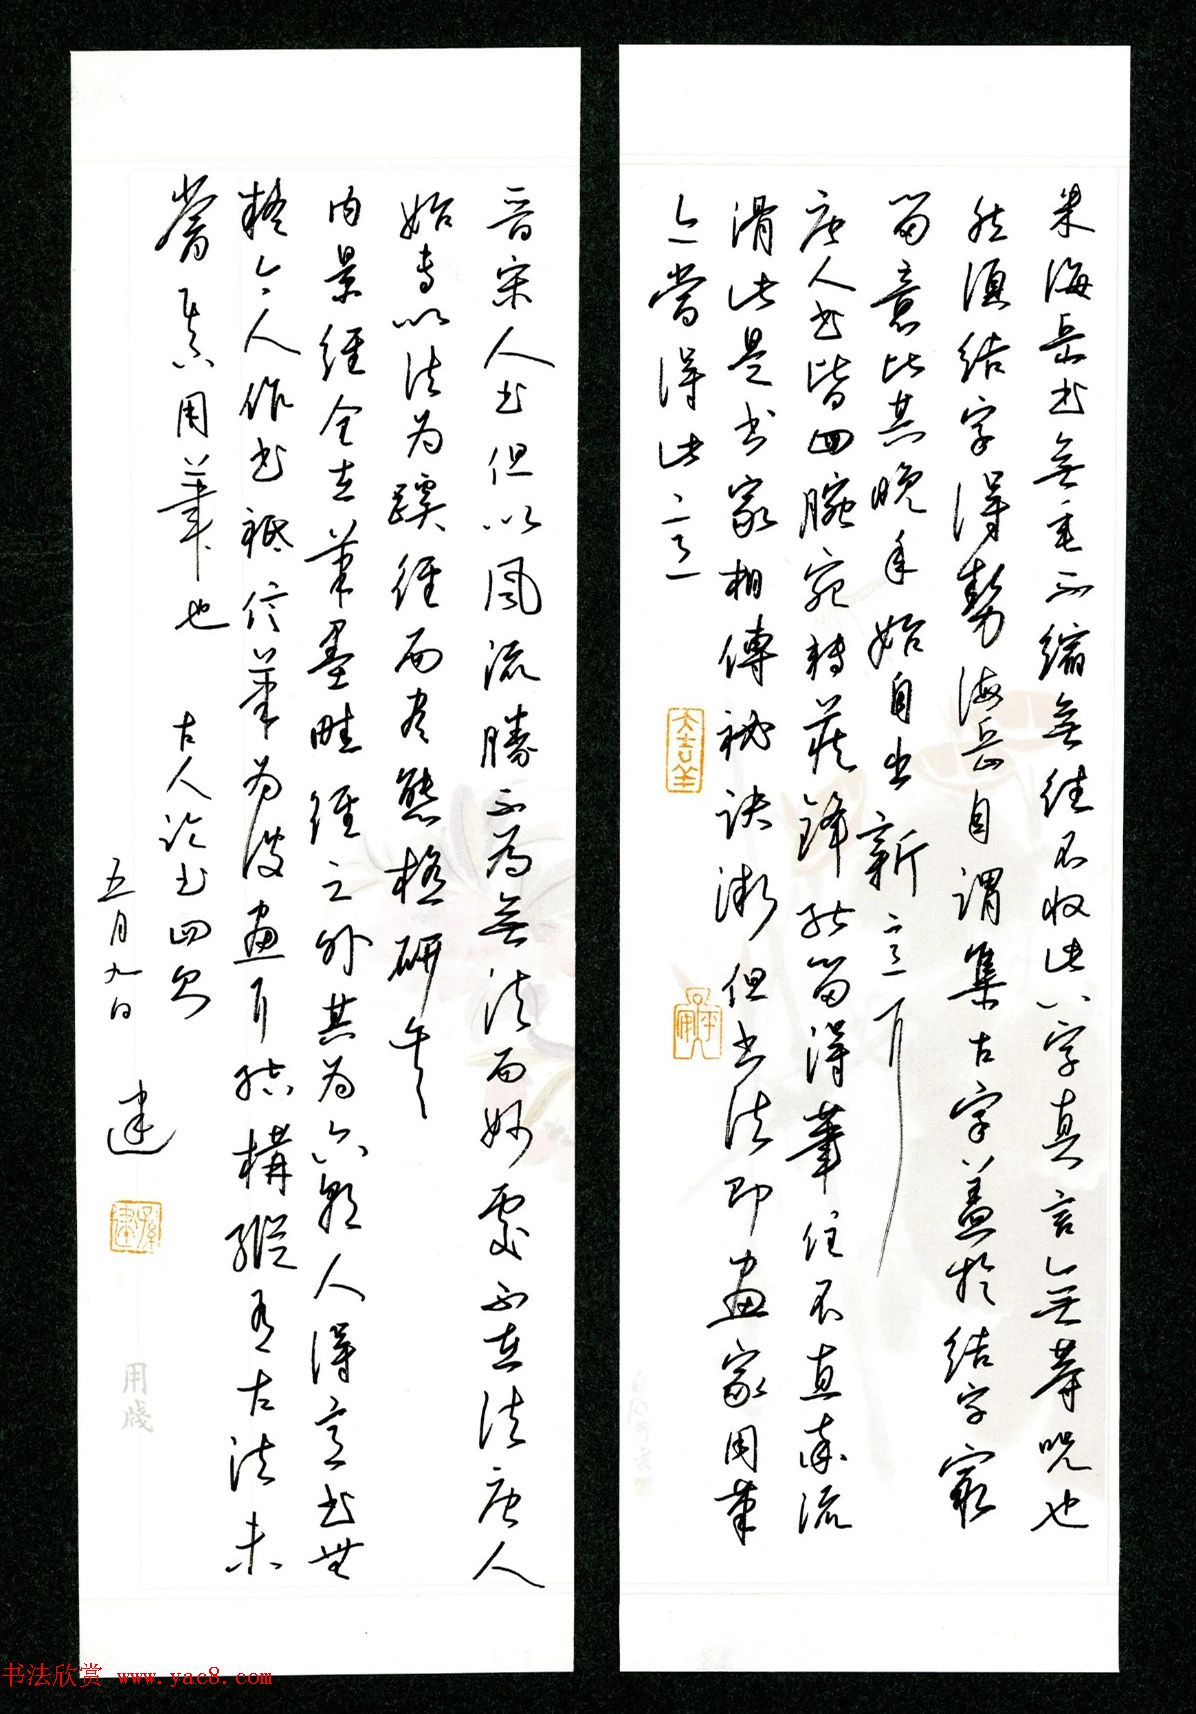 米海岳书無垂不缩無往不收此八字真言無等咒也
然须结字得势海岳自谓集古字盖於结字最
留意比其晚年始自出新意耳
唐人书皆回腕宛转藏锋能留得笔住不直率流
滑此是书家相傳秘诀微但书法即画家用笔
亦当得此意
大吉羊
晋宋人书但以風流勝不為無法而妙處不在法唐人
始专以法为蹊径而尽態極妍矣
内景经全在笔墨畦径之外其为六朝人得意书無
疑今人作书祗信笔为波画耳结構纵有古法未
尝真用笔也 古人论书四则
五月九日 建
孫建
用牋
书法欣赏 www.yac8.com